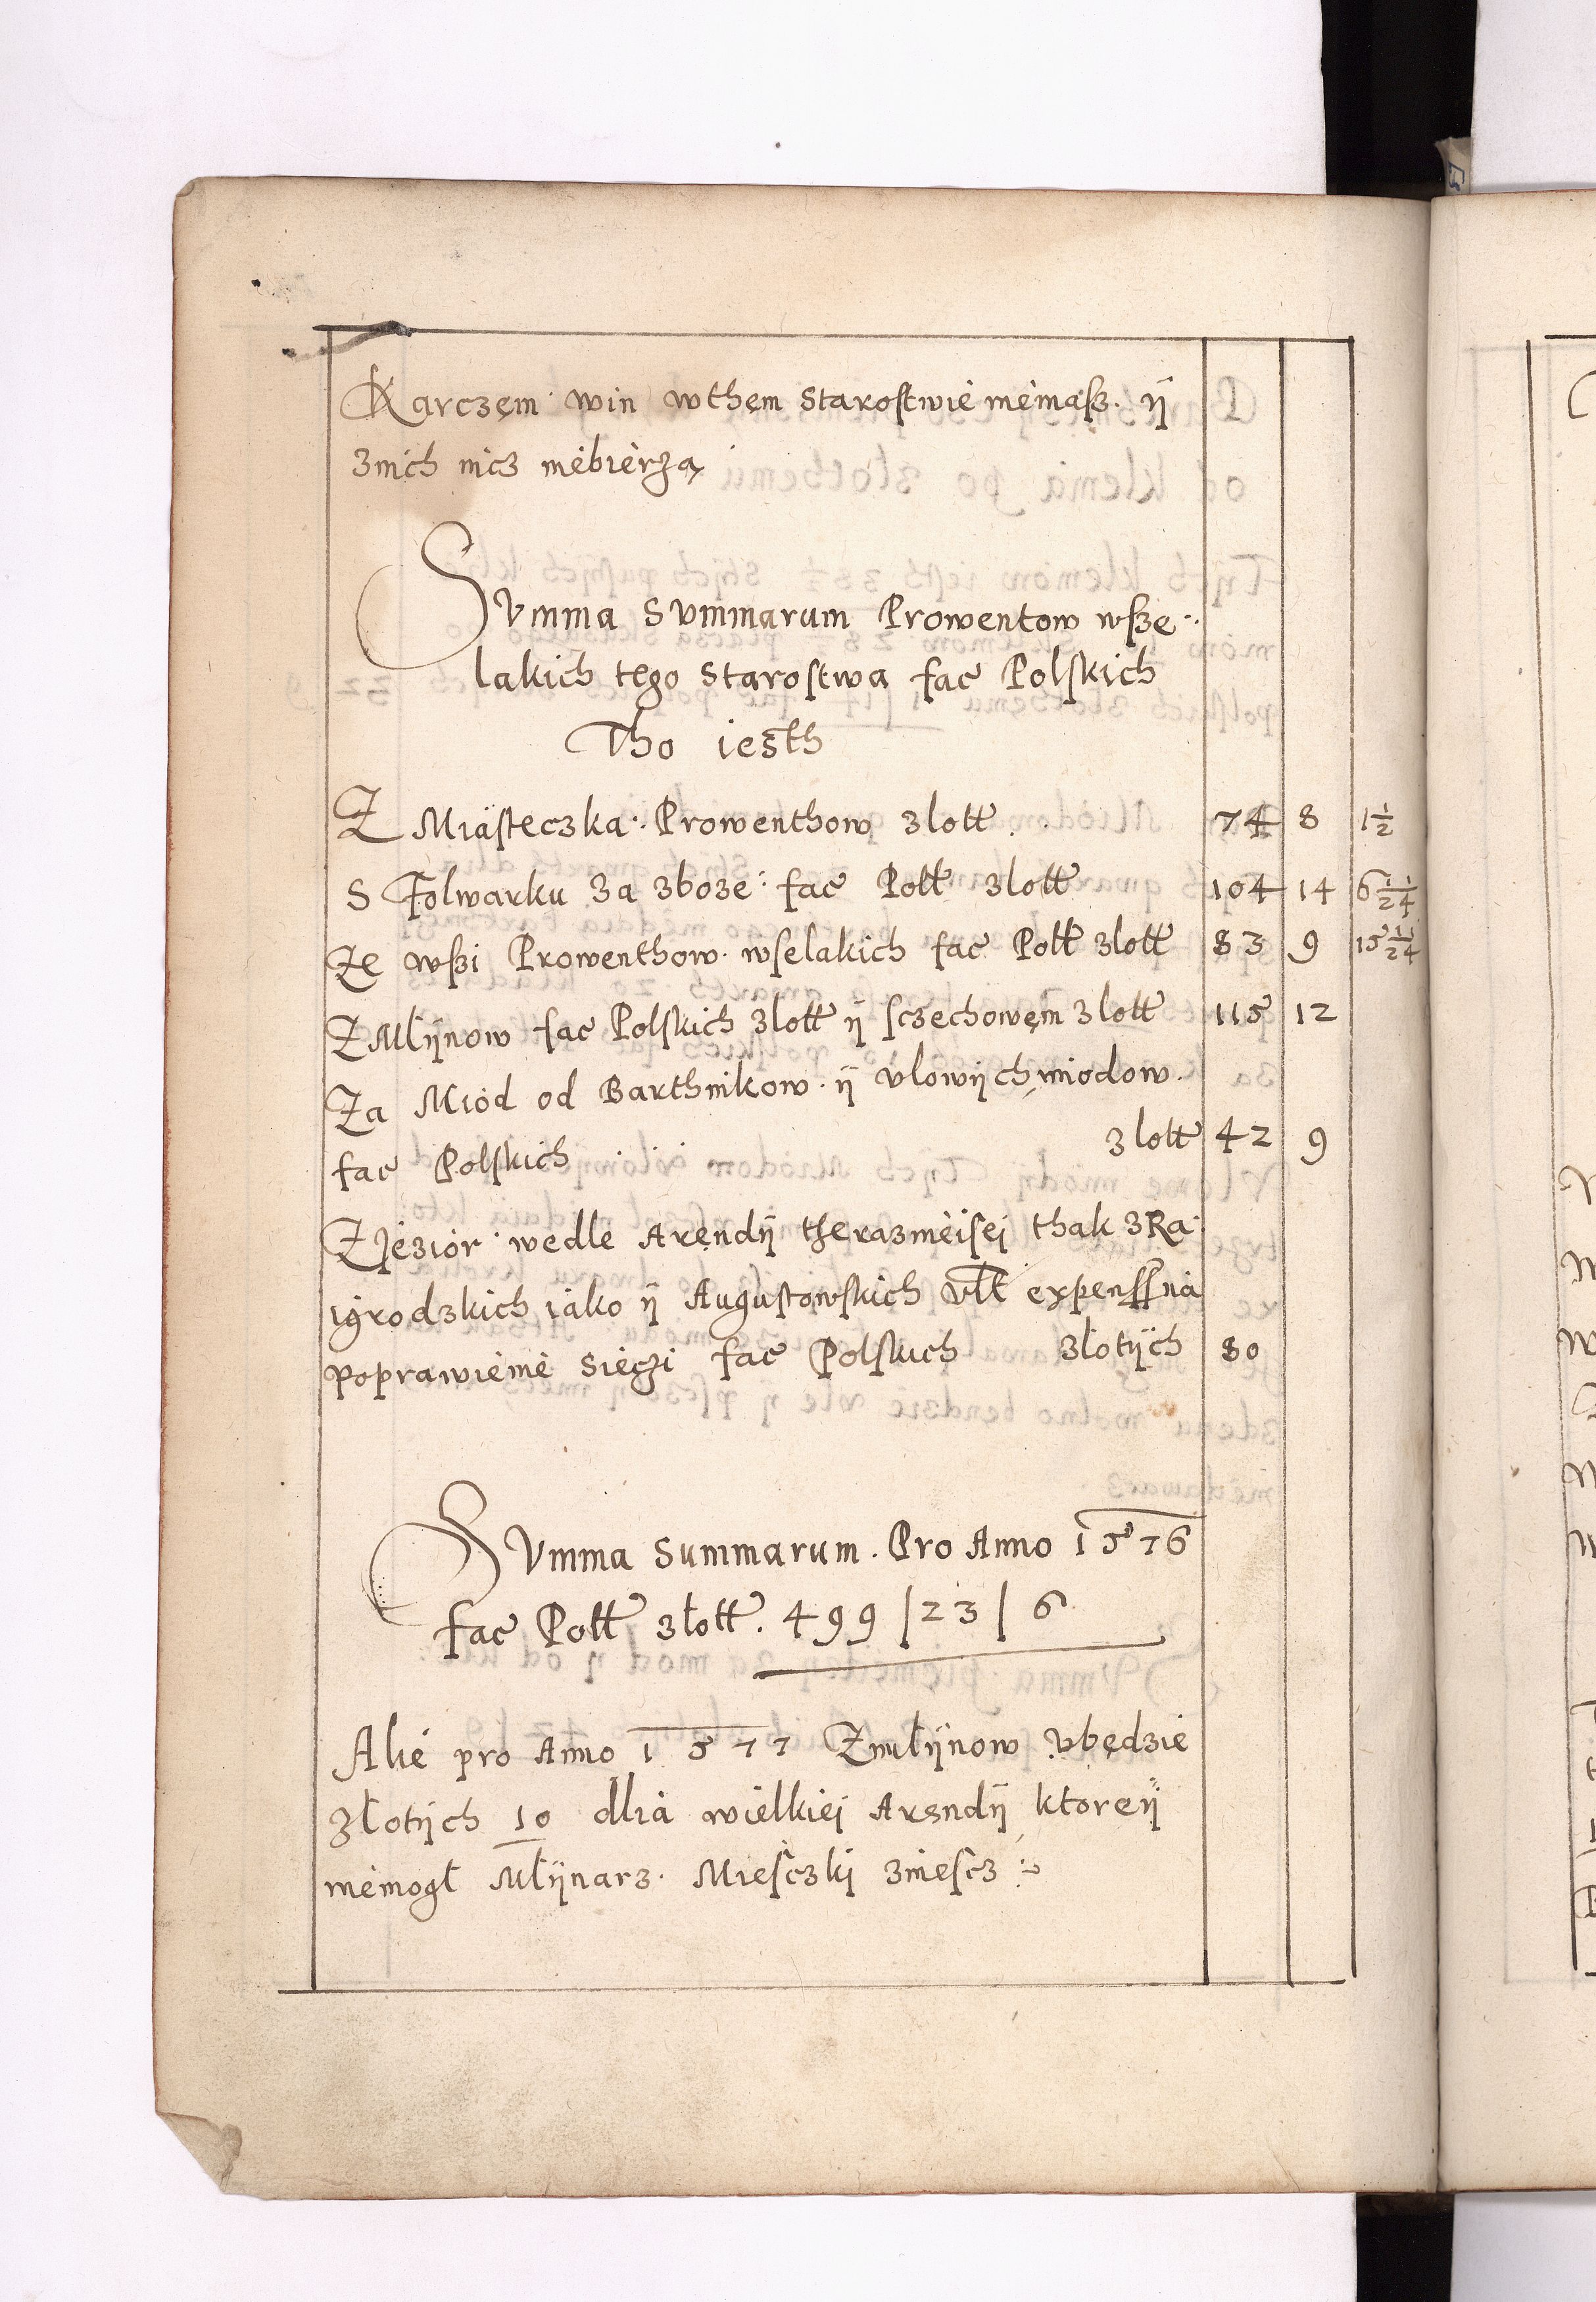 Karczem win wthem Starostwie niemasz. ÿ
znich nicz niebierzą
Summa Summarum Prowentow wsze
lakich tego Starostwa fac Polskich
Tho iesth
Z Miästeczka Prowenthow zlott 74 8 1½
S Folwarku za zboze fac Poll zlott 104 14 6 ½ ¼
Ze wszi Prowenthow wselakich fac Poll zlott 83 9 15 ½ ¼
Z Młÿnow fac Polskich zlott ÿ sczechowem zlott 115 12
Za Miód od Barthnikow ÿ vlowÿch miodow
fac Polskich zlott 42 9
Z Jezior wedle Arendÿ therazniejsej thak z Ra
igrodzkich iako ÿ Augustowskich vlt expenssi na
poprawienie Sieczi fac Polskich złotÿch 80
Summa Summarum. Pro Anno 1576
fac Poll zlott. 499 | 23 | 6
Alie pro Anno 1577 Zmłÿnow vbędzie
złotÿch 10 dlia wielkiej Arendÿ ktoreÿ
niemogł Młÿnarz Miesczkj zniescz